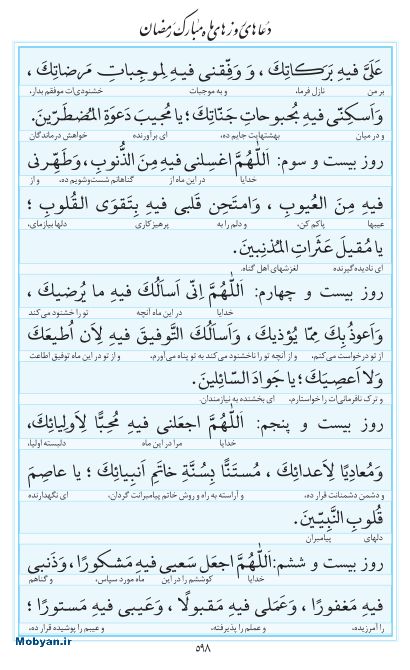 دعاهای روزهای ماه مبارک رمضان
عَلَیَّ فیهِ بَرَکاتِكَ ، وَ وَفِّقنی فیهِ لِموجِباتِ مَرضاتِكَ ،
بر من نازل فرما، و به موجبات خشنودی‌ات موفقم بدار،
وَ اَسکِنّی فیهِ بُحبوحاتِ جَنّاتِكَ ؛ یا مُجیبَ دَعوَةِ المُضطَرّینَ.
و در میان بهشتهایت جایم ده، ای برآورنده خواهش درماندگان
روز بیست و سوم: اَللّٰهُمَّ اغسِلنی فیهِ مِنَ الذُّنوبِ، وَطَهِّرنی
خدایا در این ماه از گناهانم شست‌وشویم ده، و از
فیهِ مِنَ العُیوبِ ، وَامتَحِن قَلبی فیهِ بِتَقوَی القُلوبِ ؛
عیبها پاکم کن، و دلم را به پرهیزکاری دلها بیازمای،
یا مُقیلَ عَثَراتِ المُذنِبینَ.
ای نادیده‌گیرنده لغزشهای اهل گناه.
روز بیست و چهارم: اَللّٰهُمَّ اِنّی اَساَلُكَ فیهِ ما یُرضیكَ ،
خدایا در این ماه آنچه تو را خشنود می‌کند
وَاَعوذُ بِكَ مِمّا یُؤذیكَ ، وَاَساَلُكَ التَّوفیقَ فیهِ لِاَن اُطیعَكَ
از تو درخواست می‌کنم، و از آنچه تو را ناخشنود می‌کند به تو پناه می‌آورم، و از تو در این ماه توفیق اطاعت
وَلا اَعصِیَكَ ؛ یا جَوادَ السّائِلینَ.
و ترک نافرمانی‌ات را خواستارم، ای بخشنده به نیازمندان.
روز بیست و پنجم: اَللّٰهُمَّ اجعَلنی فیهِ مُحِبًّا لِاَولِیائِكَ،
خدایا مرا در این ماه دلبسته اولیا،
وَمُعادِیًا لِاَعدائِكَ ، مُستَنًّا بِسُنَّةِ خاتَمِ اَنبِیائِكَ ؛ یا عاصِمَ
و دشمن دشمنانت قرار ده، و آراسته به راه و روش خاتم پیامبرانت گردان، ای نگهدارنده
قُلوبِ النَّبِیّینَ.
دلهای پیامبران
روز بیست و ششم: اَللّٰهُمَّ اجعَل سَعیی فیهِ مَشکورًا ، وَذَنبی
خدایا کوششم را در این ماه مورد سپاس، و گناهم
فیهِ مَغفورًا ، وَعَمَلی فیهِ مَقبولًا ، وَعَیبی فیهِ مَستورًا ؛
را آمرزیده، و عملم را پذیرفته، و عیبم را پوشیده قرار ده،
Mobyan.ir
۵۹۸